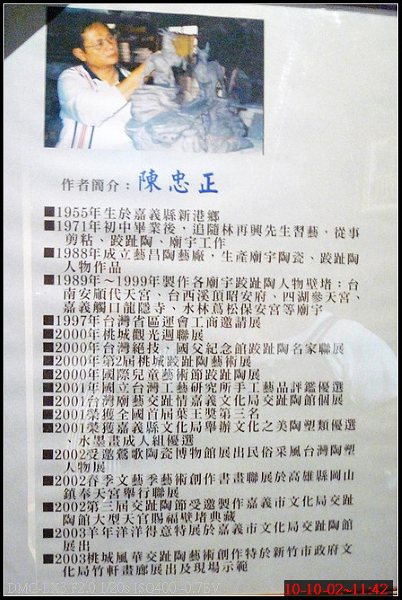 作者簡介：陳忠正
■1955年生於嘉義縣新港鄉
■1971年初中畢業後，追隨林再興先生習藝，從事
剪粘、跤趾陶、廟宇工作
■1988年成立藝昌陶藝廠，生產廟宇陶瓷、跤趾陶
人物作品
■1989年～1999年製作各廟宇跤趾陶人物壁堵：台
南安順代天宮、台西溪頂昭安府、四湖參天宮、
嘉義觸口龍隱寺、水林蔦松保安宮等廟宇
■1997年台灣省區運會工商邀請展
■2000年桃城觀光週聯展
■2000年台灣絕技、國父紀念館跤趾陶名家聯展
■2000年第2屆桃城跤趾陶藝術展
■2000年國際兒童藝術節跤趾陶展
■2001年國立台灣工藝研究所手工藝品評鑑優選
■2001台灣廟藝交趾情嘉義文化局交趾陶館個展
■2001榮獲全國首屆葉王獎第三名
■2001榮獲嘉義縣文化局舉辦文化之美陶塑類優選
、水墨畫成人組優選
■2002受邀鶯歌陶瓷博物館展出民俗采風台灣陶塑
人物展
■2002春季文藝季藝術創作書畫聯展於高雄縣岡山
鎮奉天宮舉行聯展
■2002第三屆交趾陶節受邀製作嘉義市文化局交趾
陶館大型天官賜福壁堵典藏
■2003羊年洋洋得意特展於嘉義市文化局交趾陶館
展出
■2003桃城風華交趾陶藝術創作特於新竹市政府文
化局竹軒畫廊展出及現場示範
DMC-LX3 F2.0 1/30s ISO400 -0.76V
10-10-02~11:42